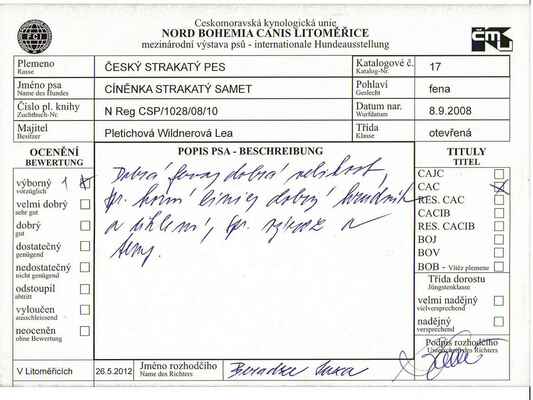 FCI
Českomoravská kynologická unie
NORD BOHEMIA CANIS LITOMĚŘICE
mezinárodní výstava psů - internationale Hundeausstellung
ČMKU
Plemeno
Rasse
ČESKÝ STRAKATÝ PES
Katalogové č.
Katalog-Nr.
17
Jméno psa
Name des Hundes
CÍNĚNKA STRAKATÝ SAMET
Pohlaví
Geslecht
fena
Číslo pl. knihy
Zuchtbuch-Nr
N Reg CSP/1028/08/10
Datum nar.
Wurfdatum
8.9.2008
Majitel
Besitzer
Pletichová Wildnerová Lea
Třída
Klasse
otevřená
OCENĚNÍ
BEWERTUNG
výborný 1
vorzüglich
velmi dobrý
sehr gut
dobrý
gut
dostatečný
genügend
nedostatečný
nicht genügend
odstoupil
abtritt
vyloučen
ausschliessend
neoceněn
ohne Bewertung
POPIS PSA - BESCHREIBUNG
Dobrá dobrá velikost,
pr. horní linie, dobrý hrudník
a úhlení, pr. a
TITULY
TITEL
CAJC
CAC
RES. CAC
CACIB
RES. CACIB
BOJ
BOV
BOB - Vítěz plemene
Třída dorostu
Jüngstenklasse
velmi nadějný
vielversprechend
nadějný
versprechend
Podpis rozhodčího
Unterschrift des Richters
V Litoměřicích
26.5.2012
Jméno rozhodčího
Name des Richters